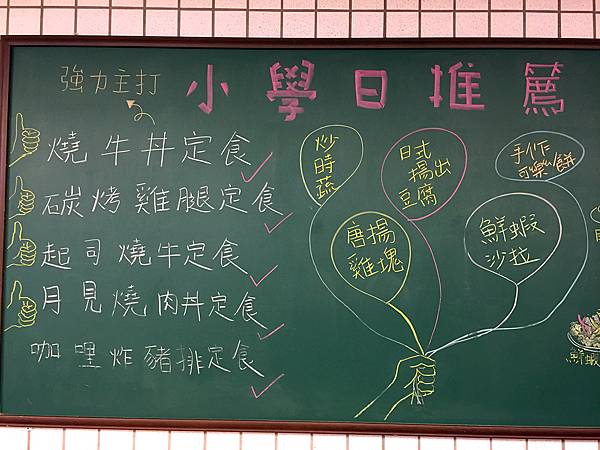 強力主打
小學日推薦
燒牛丼定食
碳烤雞腿定食
起司燒牛定食
月見燒肉丼定食
咖哩炸豬排定食
炒時蔬
日式
揚出
豆腐
手作
可樂餅
唐揚
雞塊
鮮蝦
沙拉
鮮蝦